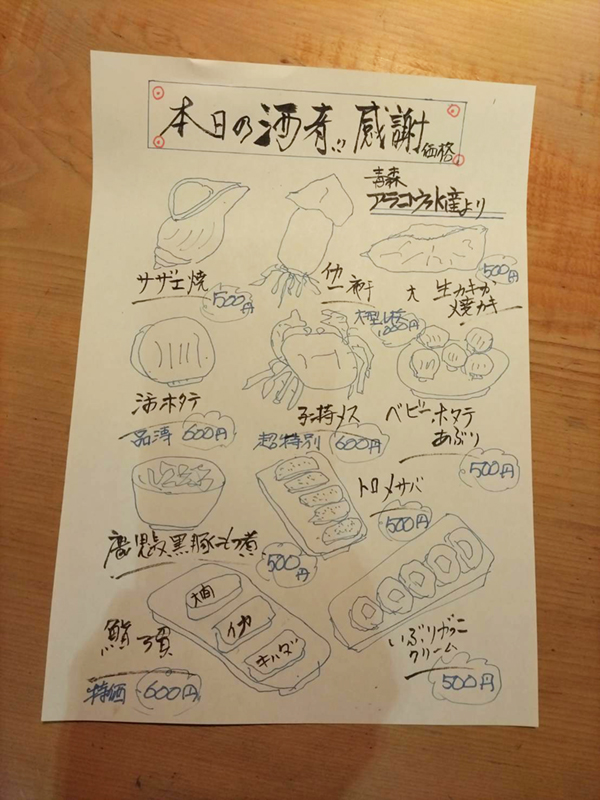 本日の酒肴!! 感謝価格
青森
アラコウ水産より
サザエ焼
500円
一夜干
大型
大 生カキか
焼カキ
500円
活ホタテ
600円
子持メス
超特別 600円
ベビーホタテ
あぶり
500円
鹿児島黒豚もつ煮
500円
トロメサバ
500円
大向
イカ
キハダ
鮨
特価 600円
いぶりがっこ
クリーム
500円